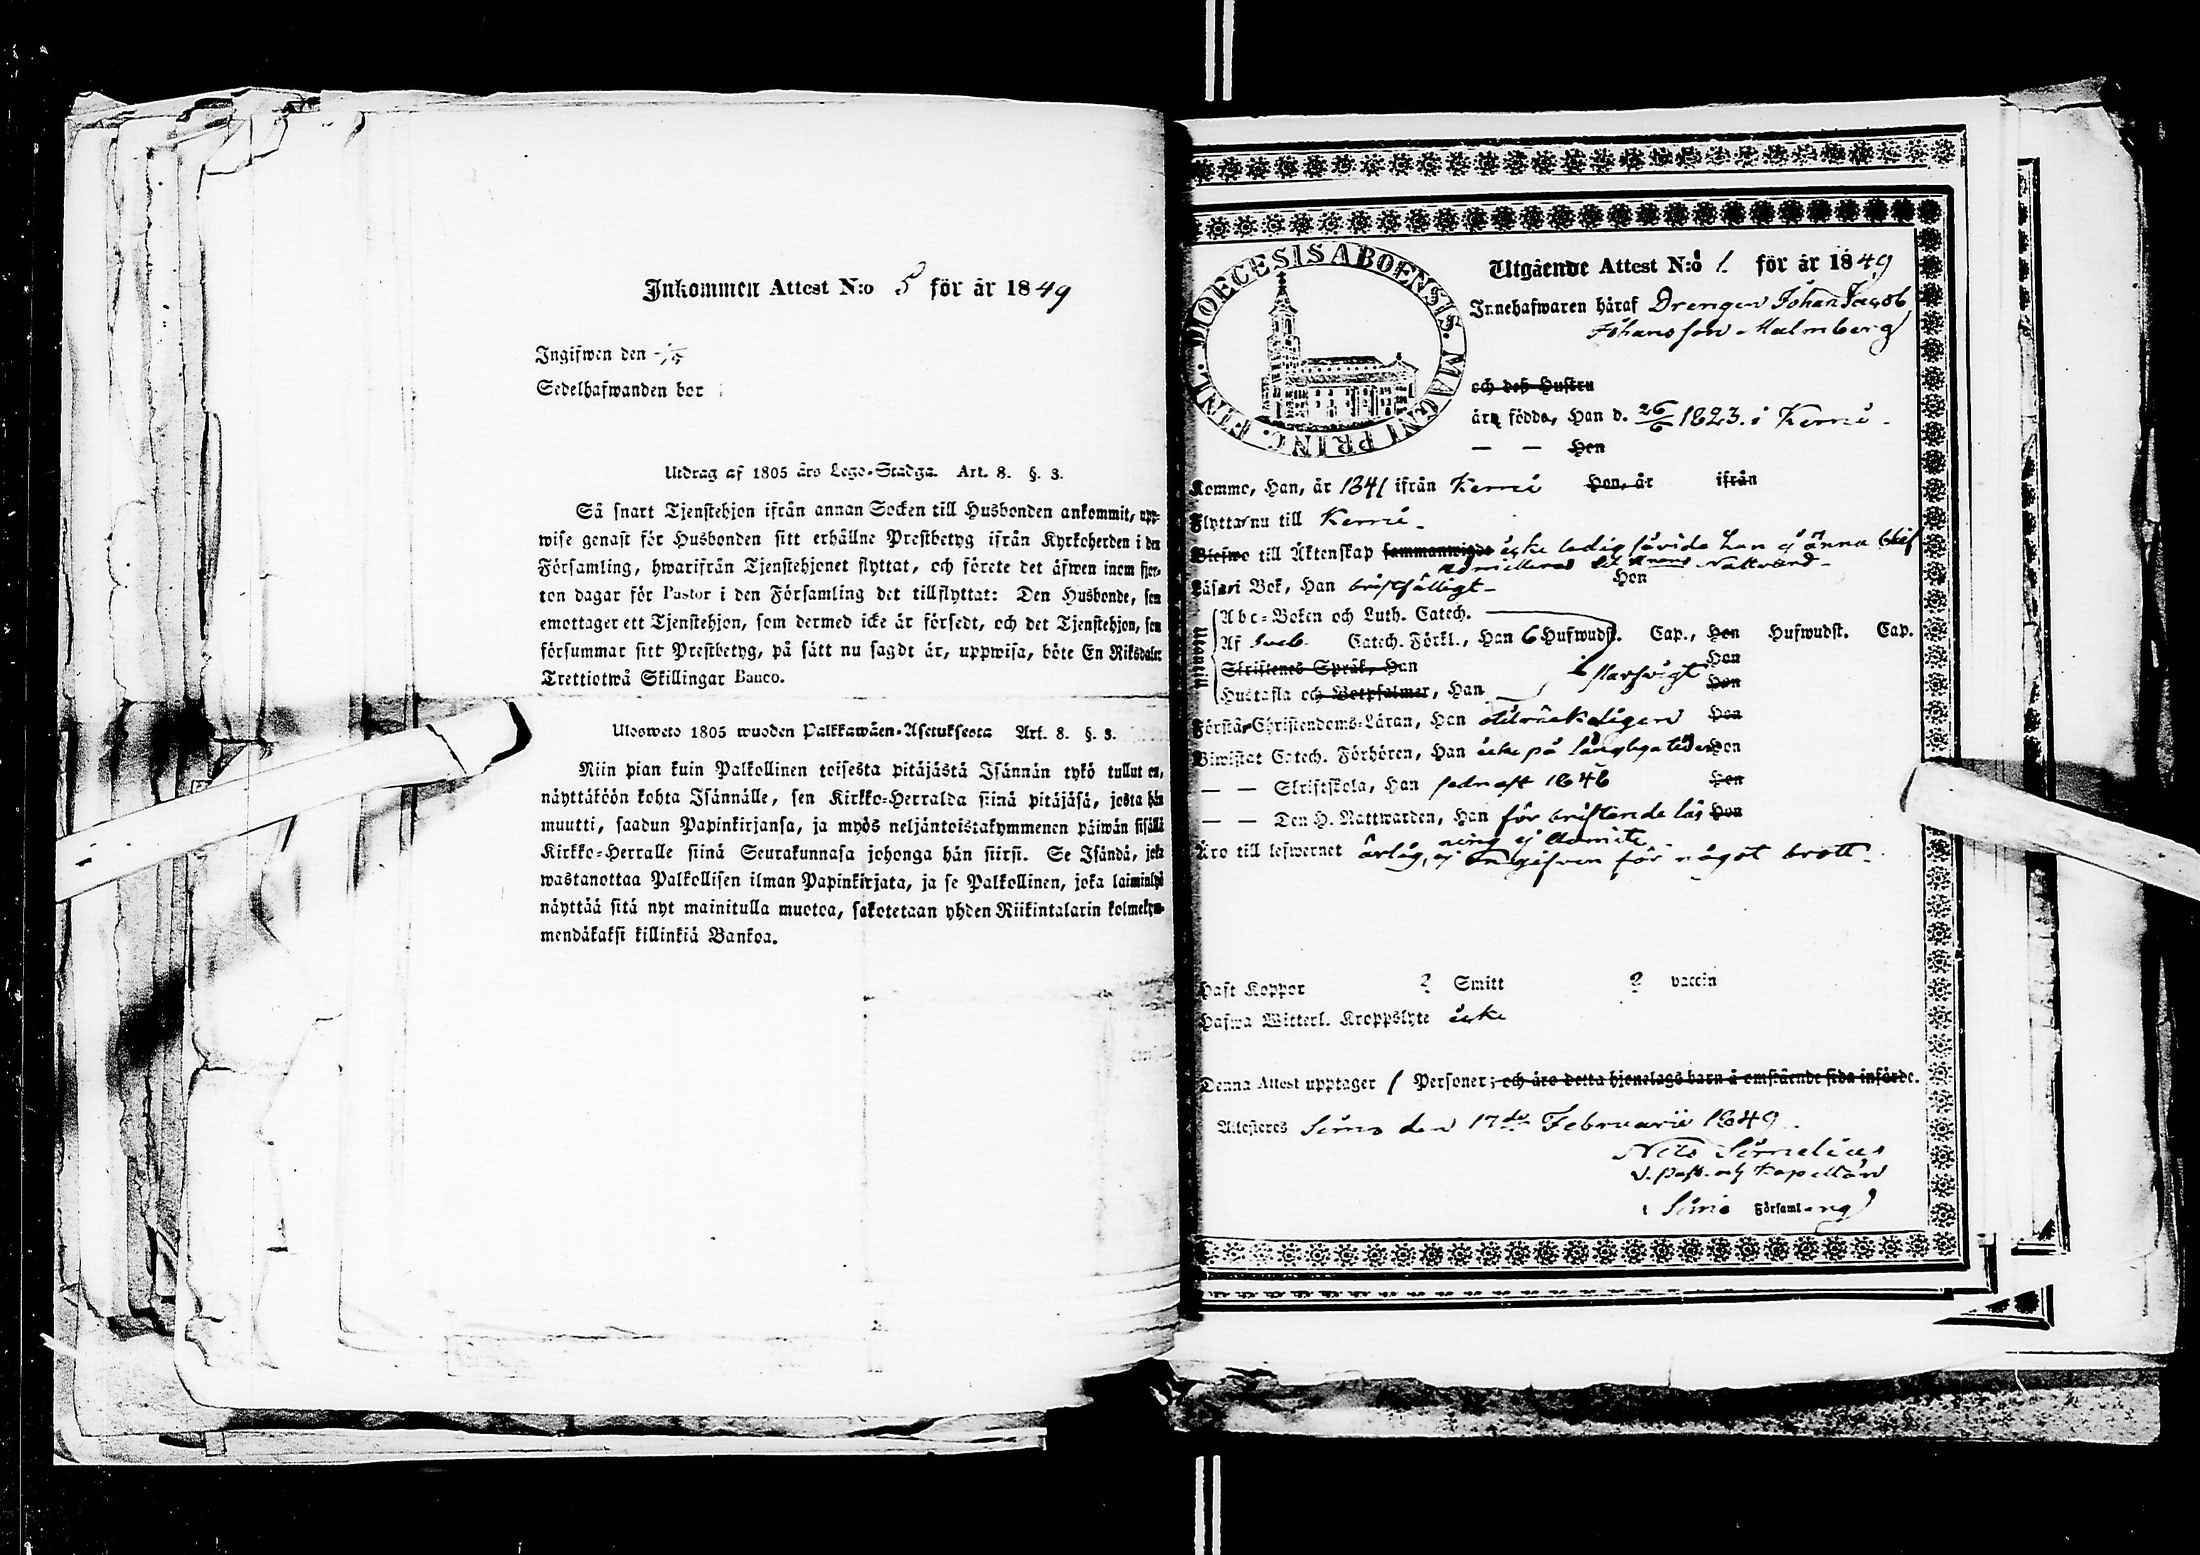 Inkommen Attest N:o 5 för år 1849
Ingifwen den
Sedelhafwanden bor
Utdrag af 1805 års Lego-Stadga. Art. 8. §. 3.
Så snart Tjenstehjon ifrån annan Socken till Husbonden ankommit, upp-
wise genast för Husbonden sitt erhållne Prestbetyg ifrån Kyrkoherden i den
Församling, hwarifrån Tjenstehjonet flyttat, och förete det äfwen inom fjor-
ton dagar för Pastor i den Församling det tillflyttat: Den Husbonde, som
emottager ett Tjenstehjon, som dermed icke är försedt, och det Tjenstehjon, som
försummar sitt Prestbetyg, på sätt nu sagdt är, uppwisa, böte En Riksdaler
Trettiotwå Skillingar Banco.
Ulosweto 1805 wuoden Palkkawäen-Asetuksesta Art. 8. §. 3.
Niin pian kuin Palkollinen toisesta pitäjästä Isännän tykö tullut on,
näyttäköön kohta Isännälle, sen Kirkko-Herralda siinä pitäjäsä, josta hän
muutti, saadun Papinkirjansa, ja myös neljäntoistakymmenen päiwän sisällä
Kirkko-Herralle siinä Seurakunnasa johonga hän siirsi. Se Isändä, joka
wastanottaa Palkollisen ilman Papinkirjata, ja se Palkollinen, joka laiminlyö
näyttää sitä nyt mainitulla muotoa, sakotetaan yhden Riikintalarin kolmekym-
mendäkaksi killinkiä Bankoa.
DIOECESIS ABOENSIS. MAGNI PRINC. FINL.
Utgående Attest N:o 1. för år 1849
Innehafwaren häraf Drengen Johan Jacob
Johansson Malmberg
och deß Hustru
äro födde, Han d. 26/6 1823. i Kemi.
— — Hon
Komne, Han, år 1841 ifrån Kemi Hon, år ifrån
Flytta nu till Kemi.
Blefwo till Äktenskap sammanwigde icke ledig såvida han ej ännu blif
admitterad till H. Nattvard.
Läsa i Bok, Han bristfälligt. Hon
Utantill
Abc-Boken och Luth. Catech.
Af Sveb. Catech. Förkl., Han 6 Hufwudst. Cap., Hon Hufwudst. Cap.
Skriftenes Språk, Han Hon
Hustafla och Botpsalmer, Han Hon
Förstå Christendoms-Läran, Han otilräckeligen Hon
Biwistat Catech. Förhören, Han icke på långliga tider Hon
— — Skriftskola, Han sednast 1846 Hon
— — Den H. Nattwarden, Han för bristande läs Hon
ning ej admitt.
Äro till lefwernet ärlig, ej angifven för något brott.
Haft Koppor ? Smitt ? vaccin
Hafwa Witterl. Kroppslyte icke
Denna Attest upptager 1 Personer; och äro detta hjonelags barn å omstående sida införde.
Attesteres Simo den 17de Februarii 1849.
Nils Simelius
V. Past. och Kapellan
i Simo Församling